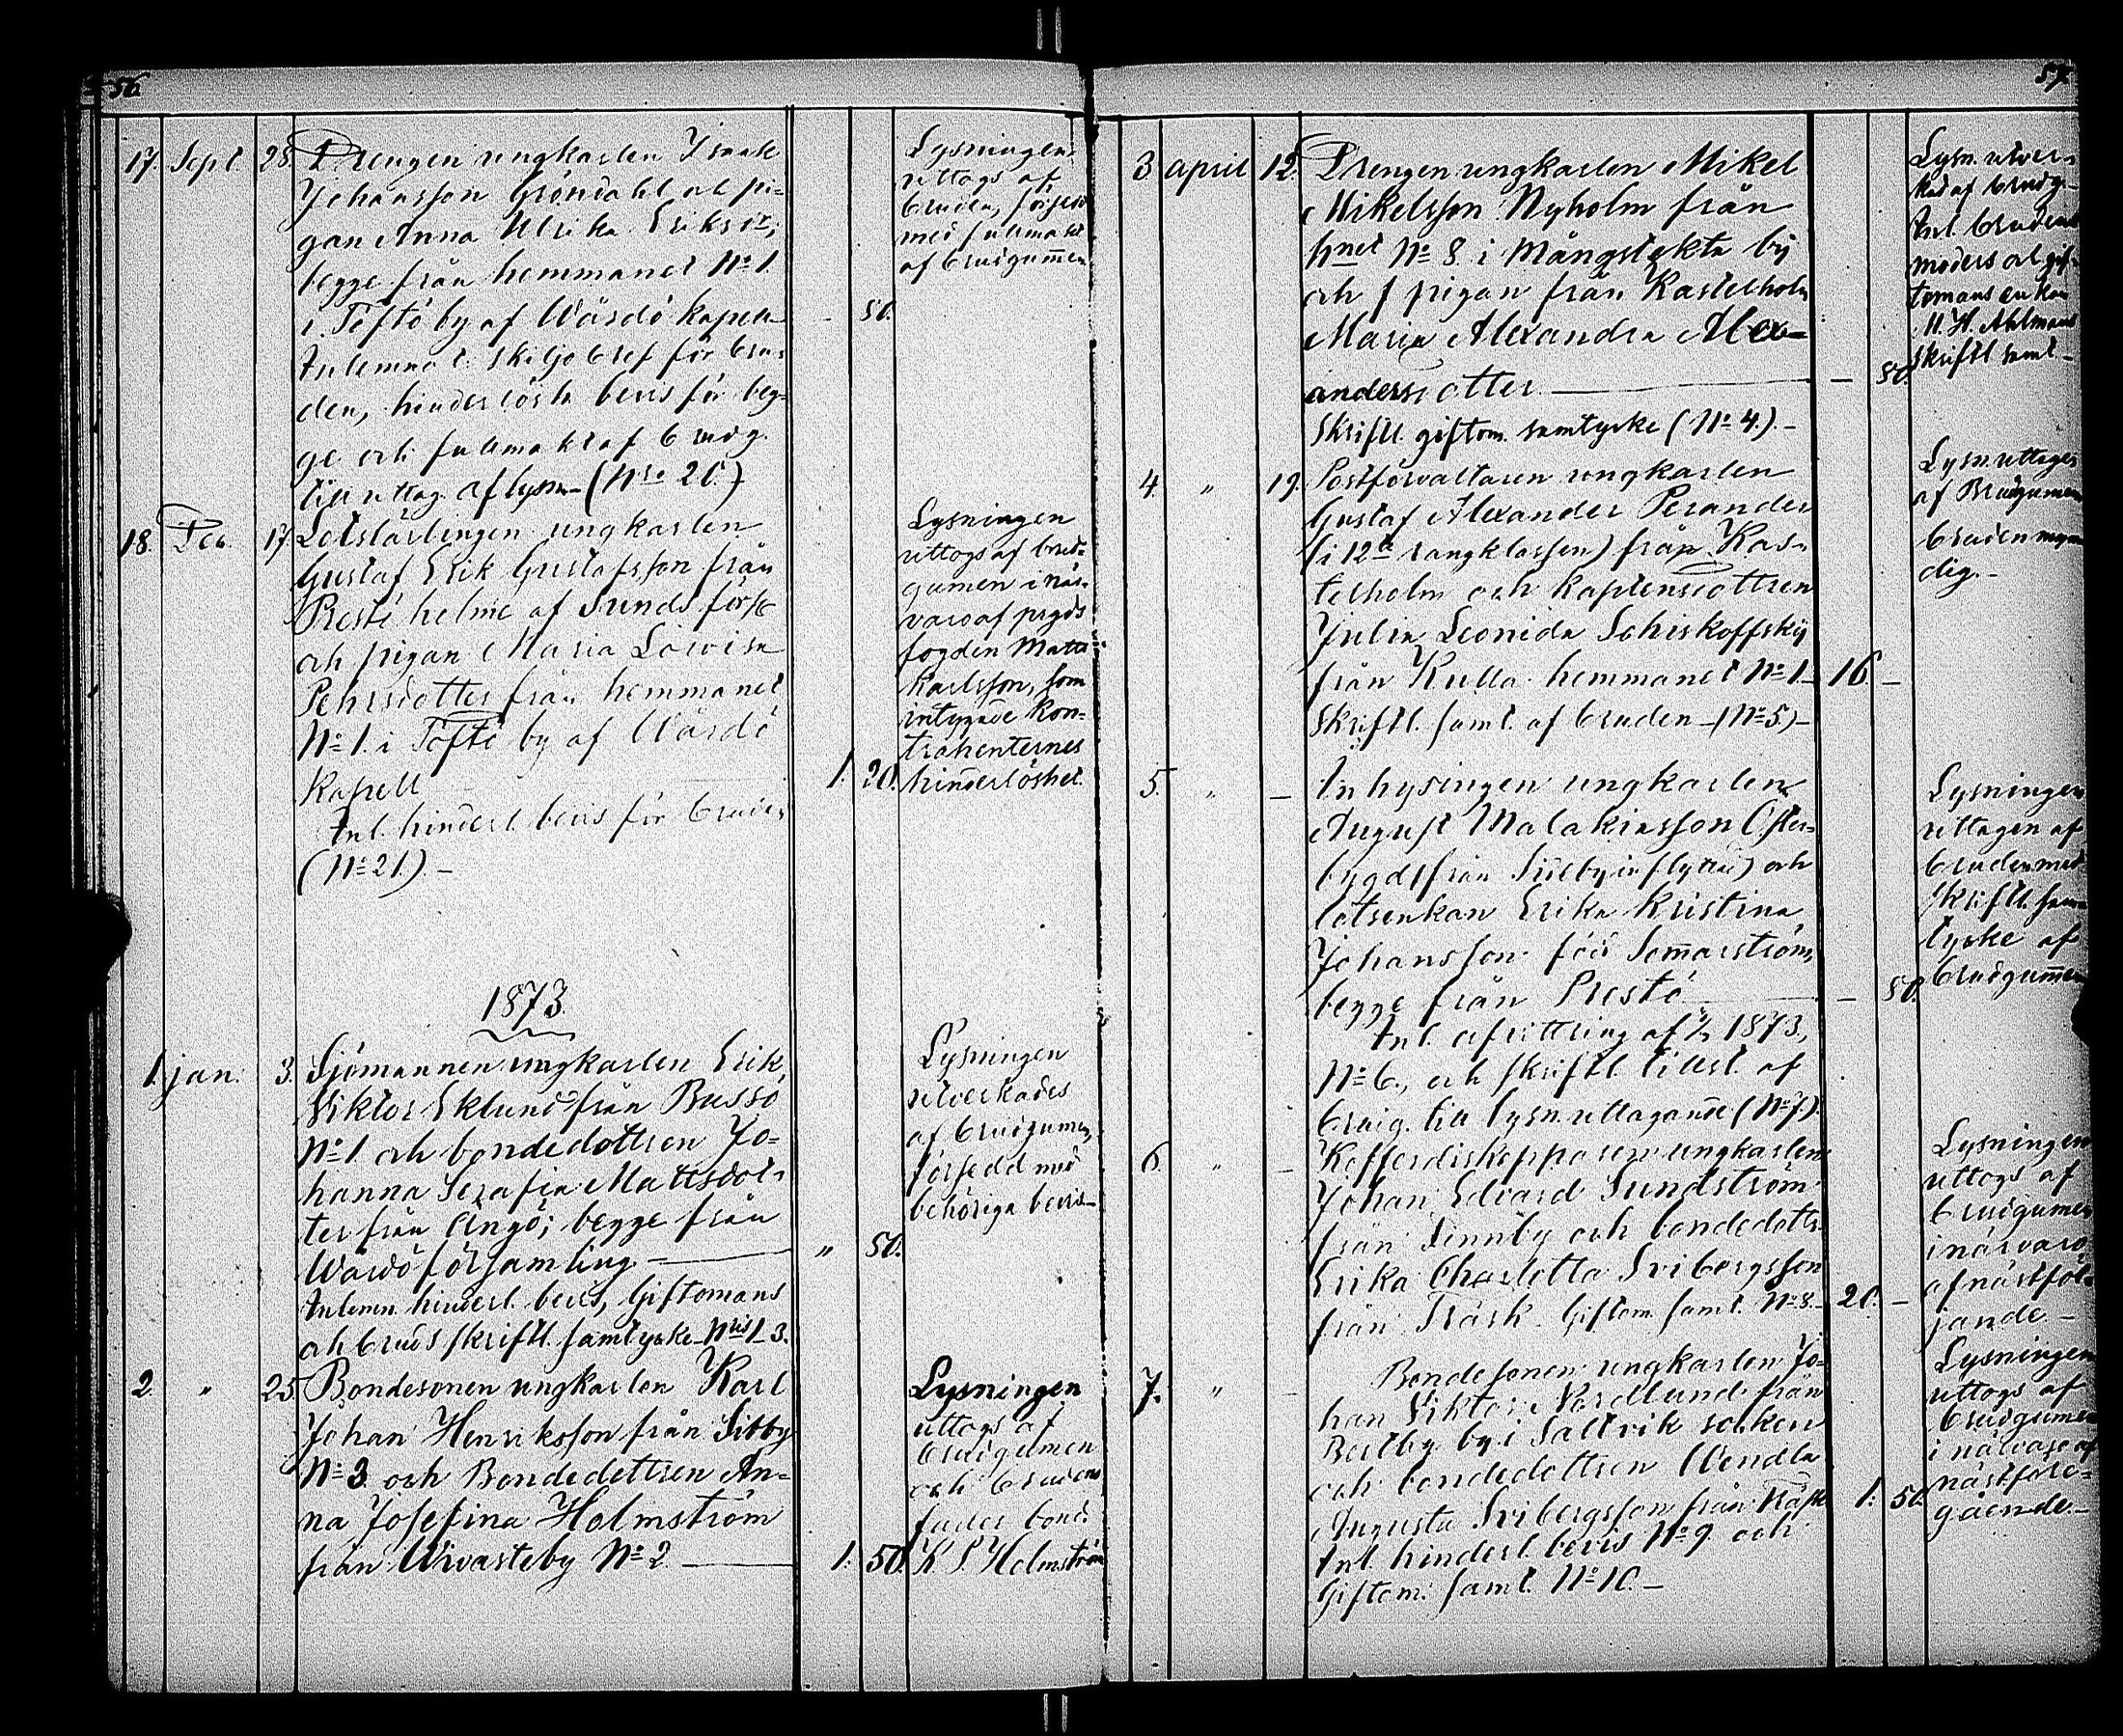 56.
17. Sept. 28. Drengen ungkarlen Isaak
Johansson Gröndahl och pi-
gan Anna Ulrika Eriksdr,
begge från hemmanet No 1.
i Töftö by af Wårdö kapell - 50.
Inlemnat: skiljobref för bru-
den, hinderlöshs bevis för beg-
ge och fullmakt af brudg.
till uttag. af lysn. (Nro 20.)
Lysningen
uttogs af
bruden, försedd
med fullmakt
af brudgummen
18. Dec. 17. Lotslärlingen ungkarlen
Gustaf Erik Gustafsson från
Prestö holme af Sunds förs.
och pigan Maria Lovisa
Pehrsdotter från hemmanet
No 1. i Töftö by af Wårdö
Kapell 1. 20.
Inl. hinderl. bevis för bruden
(No 21.). –
Lysningen
uttogs af brud-
gumen i när-
varo af prgds
fogden Matts
Karlsson, som
intygade kon-
trahenternes
hinderlöshet.
1873.
1. jan. 3. Sjömannen ungkarlen Erik
Viktor Eklund från Bussö
No 1. och bondedottren Jo-
hanna Serafia Mattsdot-
ter från Ängö; begge från
Wårdö församling. — " 50.
Inlemn. hinderl. bevis, Giftomans
och bruds skriftl. samtycke Nris 1–3.
Lysningen
utverkades
af brudgumen,
försedd med
behöriga bevis –
2. " 25. Bondesonen ungkarlen Karl
Johan Henriksson från Sibby
No 3 och Bondedottren An-
na Josefina Holmström
från Wivasteby No 2 — 1. 50.
Lysningen
uttogs af
brudgumen
och brudens
fader bond.
K. S. Holmström
57.
3 april 12. Drengen ungkarlen Mikel
Mikelsson Nyholm från
hnet No 8 i Mångstekta by
och pigan från Kastelholm
Maria Alexandra Alex-
andersdotter — – 80.
Skriftl. giftom. samtycke (No 4.) –
Lysn. utver-
kad af brudg. –
Inl. brudens
moders och gif-
tomans enkan
M. H. Ahlmans
skriftl samt –
4. " 19. Postförvaltaren ungkarlen
Gustaf Alexander Perander
(i 12a rangklassen) från Kas-
telholm och kaptensdottren
Julia Leonida Schiskoffsky
från Kulla hemmanet No 1. – 16. –
Skriftl. samt. af bruden – (No 5) –
Lysn. uttages
af Brudgumen
bruden myn-
dig. –
5. " – Inhysingen ungkarlen
August Malakiasson Öster-
bygd (från Sibby inflyttad) och
lotsenkan Erika Kristina
Johansson född Sommarström,
begge från Prestö — – 80.
Inl. afvittring af 1873,
No 6., och skriftl. tillst. af
brudg. till lysn. uttagande (No 7.).
Lysningen
uttagen af
bruden med
skriftl. sam-
tycke af
brudgummen
6. " – Kofferdiskepparen ungkarlen
Johan Edvard Sundström
från Finnby och bondedottr.
Erika Charlotta Svibergsson
från Träsk. Giftom. samt. No 8. – 20. –
Lysningen
uttogs af
brudgumen
i närvaro
af nästföl-
jande. –
7. " – Bondesonen ungkarlen Jo-
han Viktor Nordlund från
Bertby by i Saltvik socken
och bondedottren Wendla
Augusta Svibergsson från Träsk 1. 50.
Inl. hinderl. bevis No 9. och
Giftom. samt. No 10. –
Lysningen
uttogs af
brudgumen
i närvaro af
nästföre-
gående. –